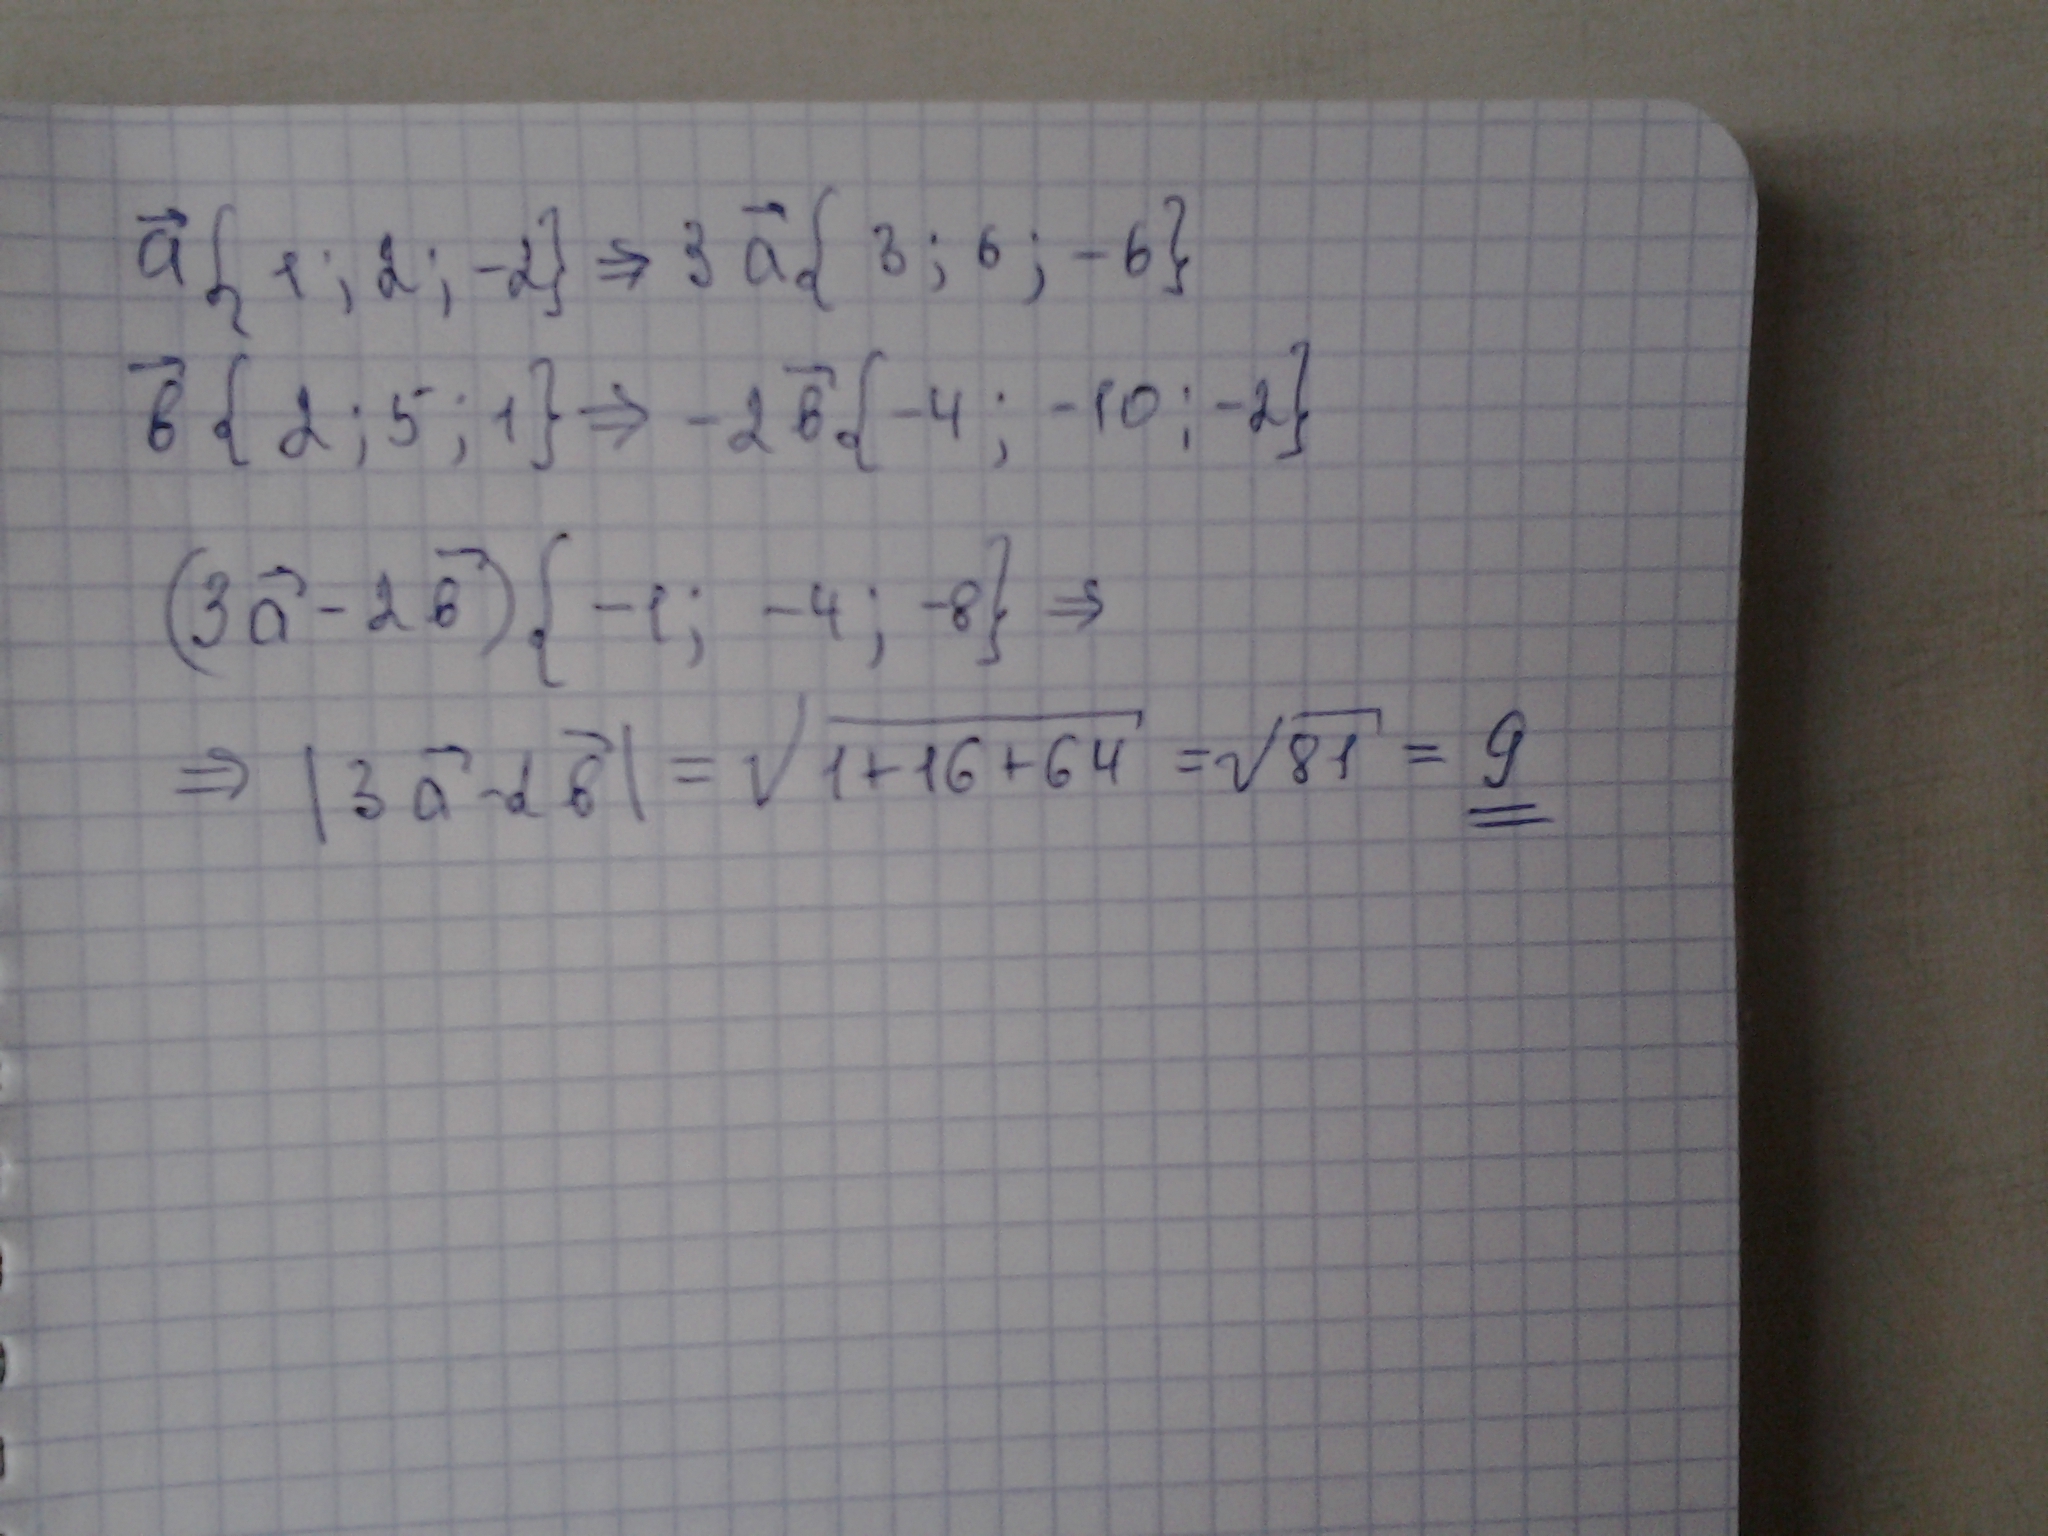 a⃗{1; 2; -2} ⇒ 3a⃗{3; 6; -6}
в⃗{2; 5; 1} ⇒ -2в⃗{-4; -10; -2}
(3a⃗ - 2в⃗){-1; -4; -8} ⇒
⇒ |3a⃗ - 2в⃗| = √(1+16+64) = √81 = 9